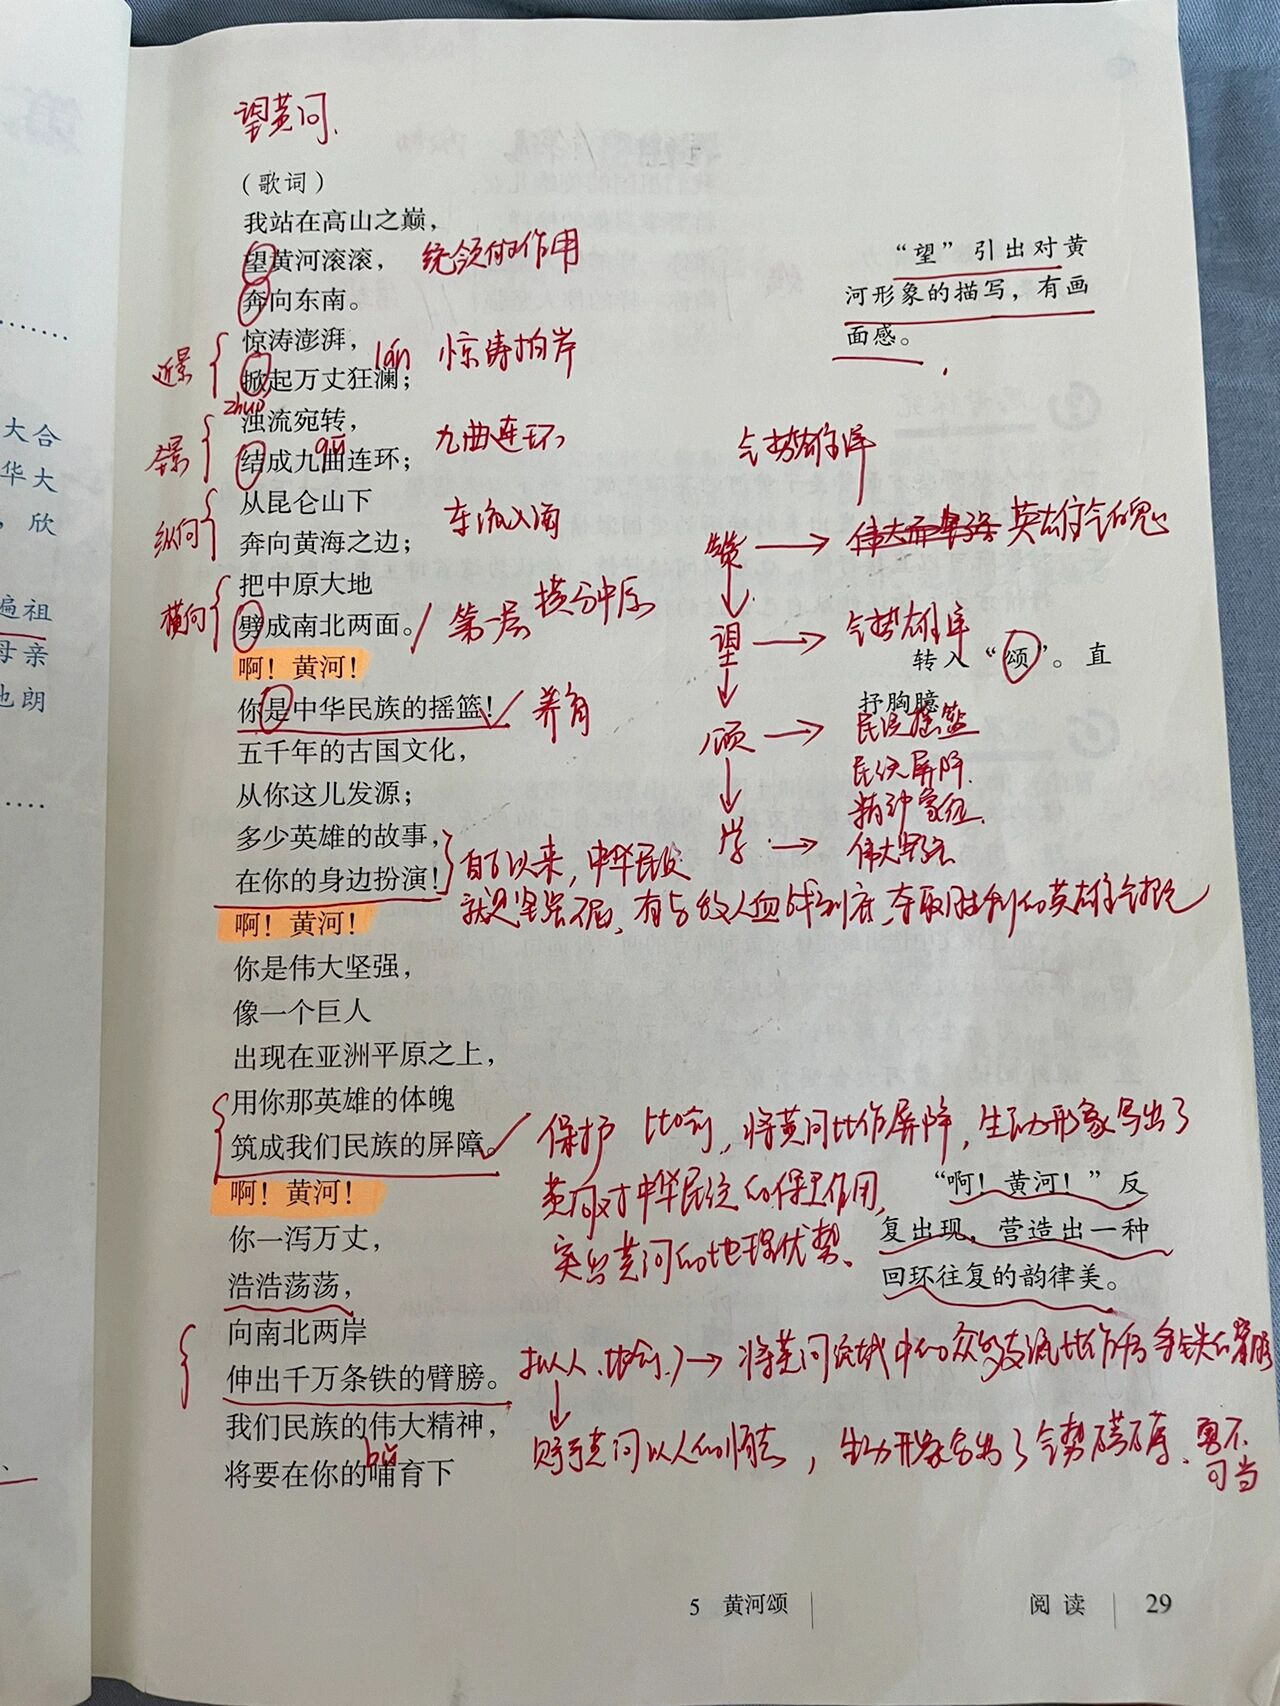 望黄河
（歌词）
我站在高山之巅，
望黄河滚滚， 统领的作用
奔向东南。
“望”引出对黄
河形象的描写，有画
面感。
近景
惊涛澎湃， lán 惊涛拍岸
掀起万丈狂澜；
zhuó
全景
浊流宛转，
qū
结成九曲连环； 九曲连环
纵向
从昆仑山下
奔向黄海之边； 东流入海
横向
把中原大地
劈成南北两面。/ 第一层 横分中原
气势雄浑
赞 → 伟大而坚强 英雄气魄
望 → 气势雄浑
颂 → 民族摇篮
民族屏障
精神象征
学 → 伟大坚强
转入“颂”。直
抒胸臆
啊！黄河！
你是中华民族的摇篮！ 养育
五千年的古国文化，
从你这儿发源；
多少英雄的故事，
在你的身边扮演！
自古以来，中华民族
就是坚强不屈、有与敌人血战到底、夺取胜利的英雄气概
啊！黄河！
你是伟大坚强，
像一个巨人
出现在亚洲平原之上，
用你那英雄的体魄
筑成我们民族的屏障。
保护 比喻，将黄河比作屏障，生动形象写出了
黄河对中华民族的保卫作用，
突出黄河的地理优势。
“啊！黄河！”反
复出现，营造出一种
回环往复的韵律美。
啊！黄河！
你一泻万丈，
浩浩荡荡，
向南北两岸
伸出千万条铁的臂膀。
拟人、比喻 → 将黄河流域中的众多支流比作铁的臂膀
我们民族的伟大精神，
bǔ
将要在你的哺育下
赋予黄河以人的情志，生动形象写出了气势磅礴、勇不
可当
5 黄河颂 阅读 29
大合
华大
，欣
遍祖
母亲
也朗